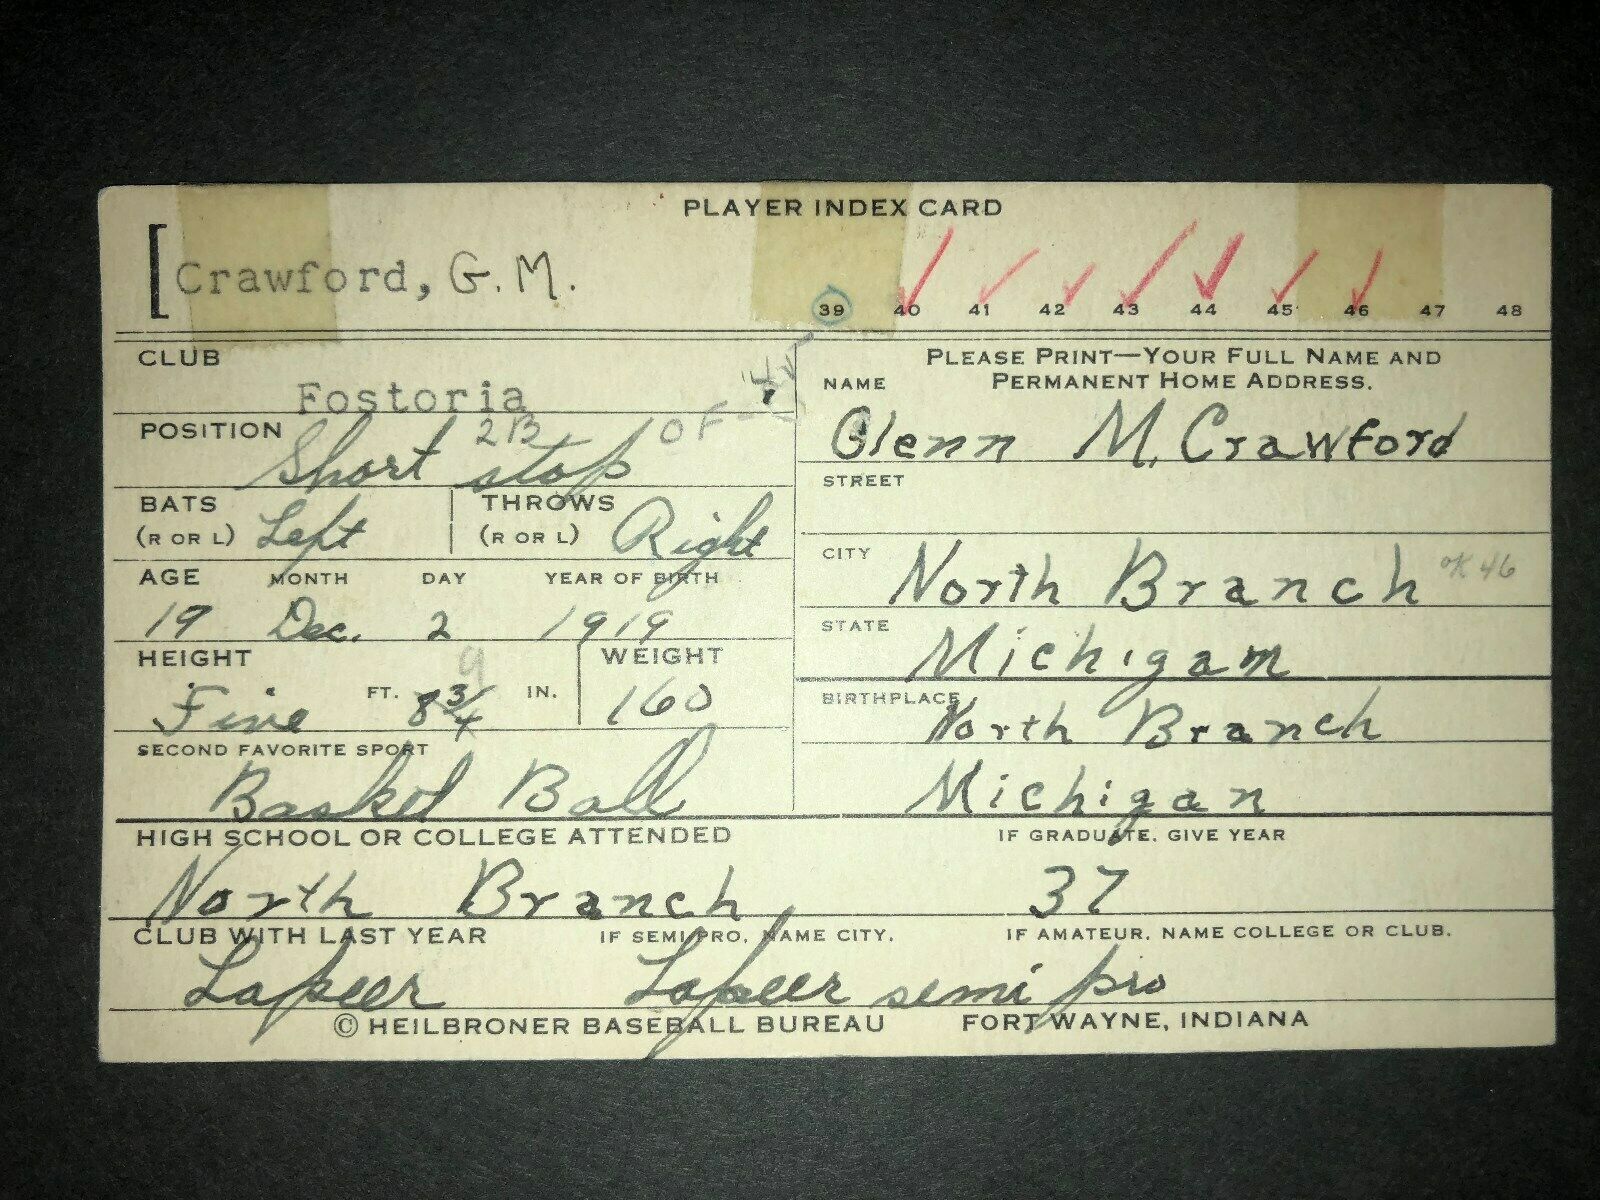 PLAYER INDEX CARD
[Crawford, G.M.
39 40 41 42 43 44 45 46 47 48
CLUB
Fostoria
POSITION Short stop 2B OF-SS '45
BATS (R OR L) Left THROWS (R OR L) Right
AGE MONTH DAY YEAR OF BIRTH
19 Dec. 2 1919
HEIGHT WEIGHT
Five FT. 8 3/4 9 IN. 160
SECOND FAVORITE SPORT
Basket Ball
PLEASE PRINT—YOUR FULL NAME AND
NAME PERMANENT HOME ADDRESS.
Glenn M. Crawford
STREET
CITY North Branch OK 46
STATE Michigan
BIRTHPLACE North Branch
Michigan
HIGH SCHOOL OR COLLEGE ATTENDED IF GRADUATE, GIVE YEAR
North Branch 37
CLUB WITH LAST YEAR IF SEMI-PRO, NAME CITY. IF AMATEUR, NAME COLLEGE OR CLUB.
Lapeer Lapeer semi pro
© HEILBRONER BASEBALL BUREAU FORT WAYNE, INDIANA